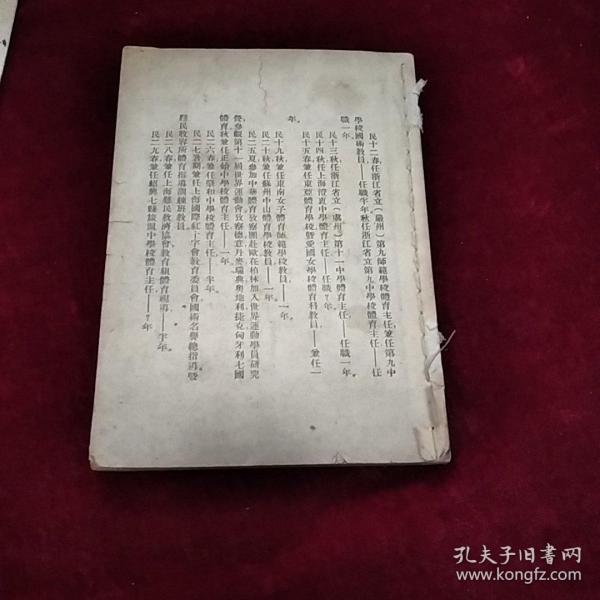 民十二春任浙江省立（嚴州）第九師範學校體育主任，兼任第九中
學校國術教員——任職半年秋任浙江省立第九中學校體育主任——任
職一年。
民十三秋任浙江省立（處州）第十一中學體育主任——任職一年。
民十四秋任上海澄衷中學體育主任——任職7年。
民十五春兼任東亞體育學校曁愛國女學校體育科教員——兼任一
年。
民十九秋兼任東南女子體育師範學校教員——一年。
民二十秋兼任蘇州中山體育學校教員——一年。
民二五夏參加中華體育攷察團赴歐在柏林加入世界運動學員研究
營，參觀第十一屆世界運動會攷察德意丹麥瑞典奧地利捷克匈牙利七國
體育秋兼任正始中學校體育主任——一年。
民二六春兼任肇和中學校體育主任——半年。
民二七暑期兼任上海國際紅十字會教育委員會國術名譽總指導曁
難民收容所體育指導訓練班教員。
民二八春任上海難民救濟協會教育組體育視導——半年。
民二九春兼任紹興七縣旅滬中學校體育主任——7年。
孔夫子旧书网
www.kongfz.com